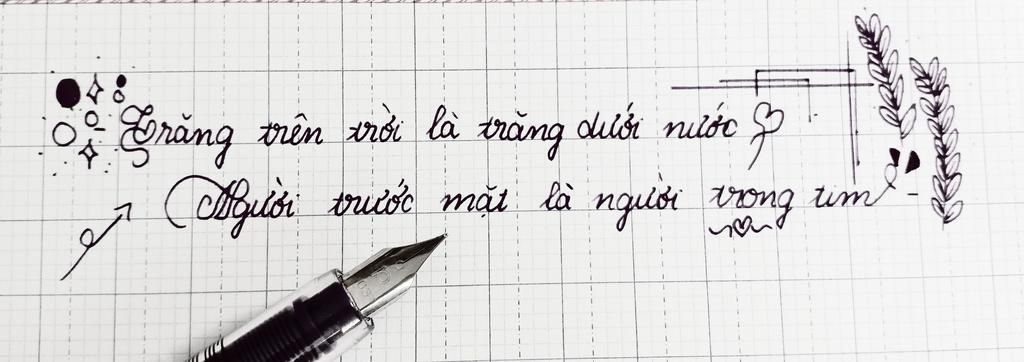 Trăng trên trời là trăng dưới nước
Người trước mặt là người trong tim